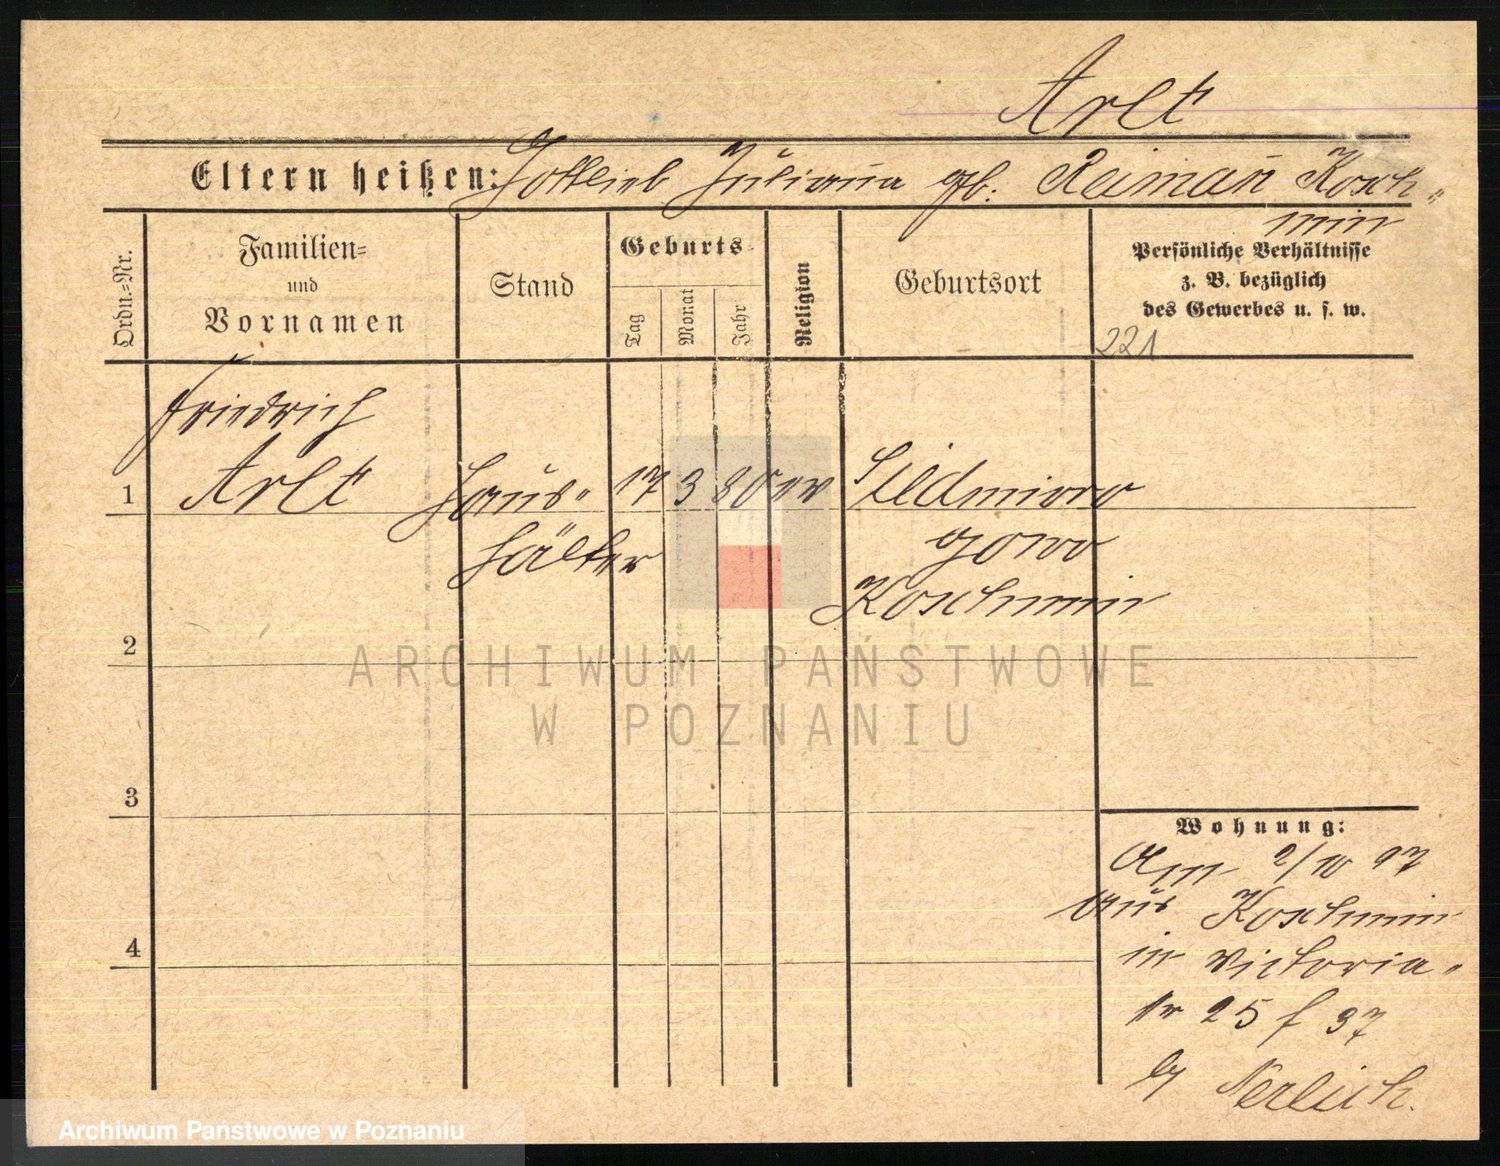 Arlt
Eltern heißen: Gottlieb Juliana gb. Reimañ Kosch-
min
Ordn.-Nr.
Familien-
und
Vornamen
Stand
Geburts-
Tag
Monat
Jahr
Religion
Geburtsort
Persönliche Verhältnisse
z. B. bezüglich
des Gewerbes u. s. w.
221
Friedrich
1 Arlt Haus- 17 3 80 ev Siedmioro
hälter gowo
Koschmin
2
3
4
ARCHIWUM PAŃSTWOWE
W POZNANIU
Wohnung:
Am 2/10 97
aus Koschmin
in Victoria-
str 25 f 37
by Nerlich.
Archiwum Państwowe w Poznaniu